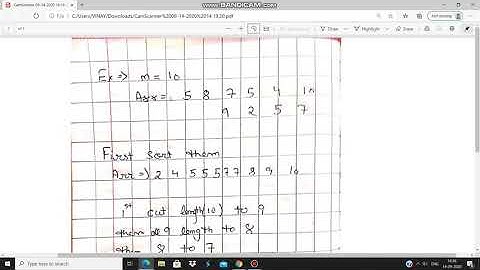 www.BANDICAM.com
C:/Users/VINAY/Downloads/CamScanner%2009-14-2020%2014.13.20.pdf
Ex => m = 10
Arr = 5 8 7 5 4 10
9 2 5 7
First sort them
Arr => 2 4 5 5 5 7 7 8 9 10
1st cut length(10) to 9
them all 9 length to 8
then 8 to 7
Type here to search